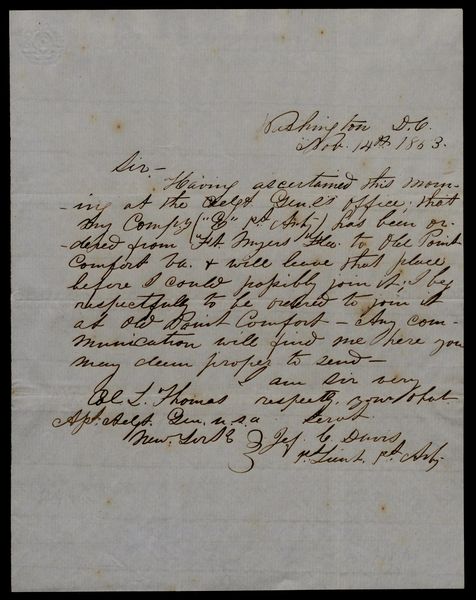 Washington D.C.
Nov. 14th 1853.
Sir -
Having ascertained this morn-
-ing at the Adgt Genls office, that
my Comp'y ("B" 1st Arty) has been or-
-dered from "Ft Myers" Fla. to Old Point
Comfort Va. & will leave that place
before I could possibly join it; I beg
respectfully to be ordered to join it
at Old Point Comfort - Any com-
munication will find me here you
may deem proper to send -
I am Sir very
Col L. Thomas respectf. your obt.
Asst. Adgt. Gen. U.S.A. Servt.
New York Jef. C. Davis
1st Lieut. 1st Arty